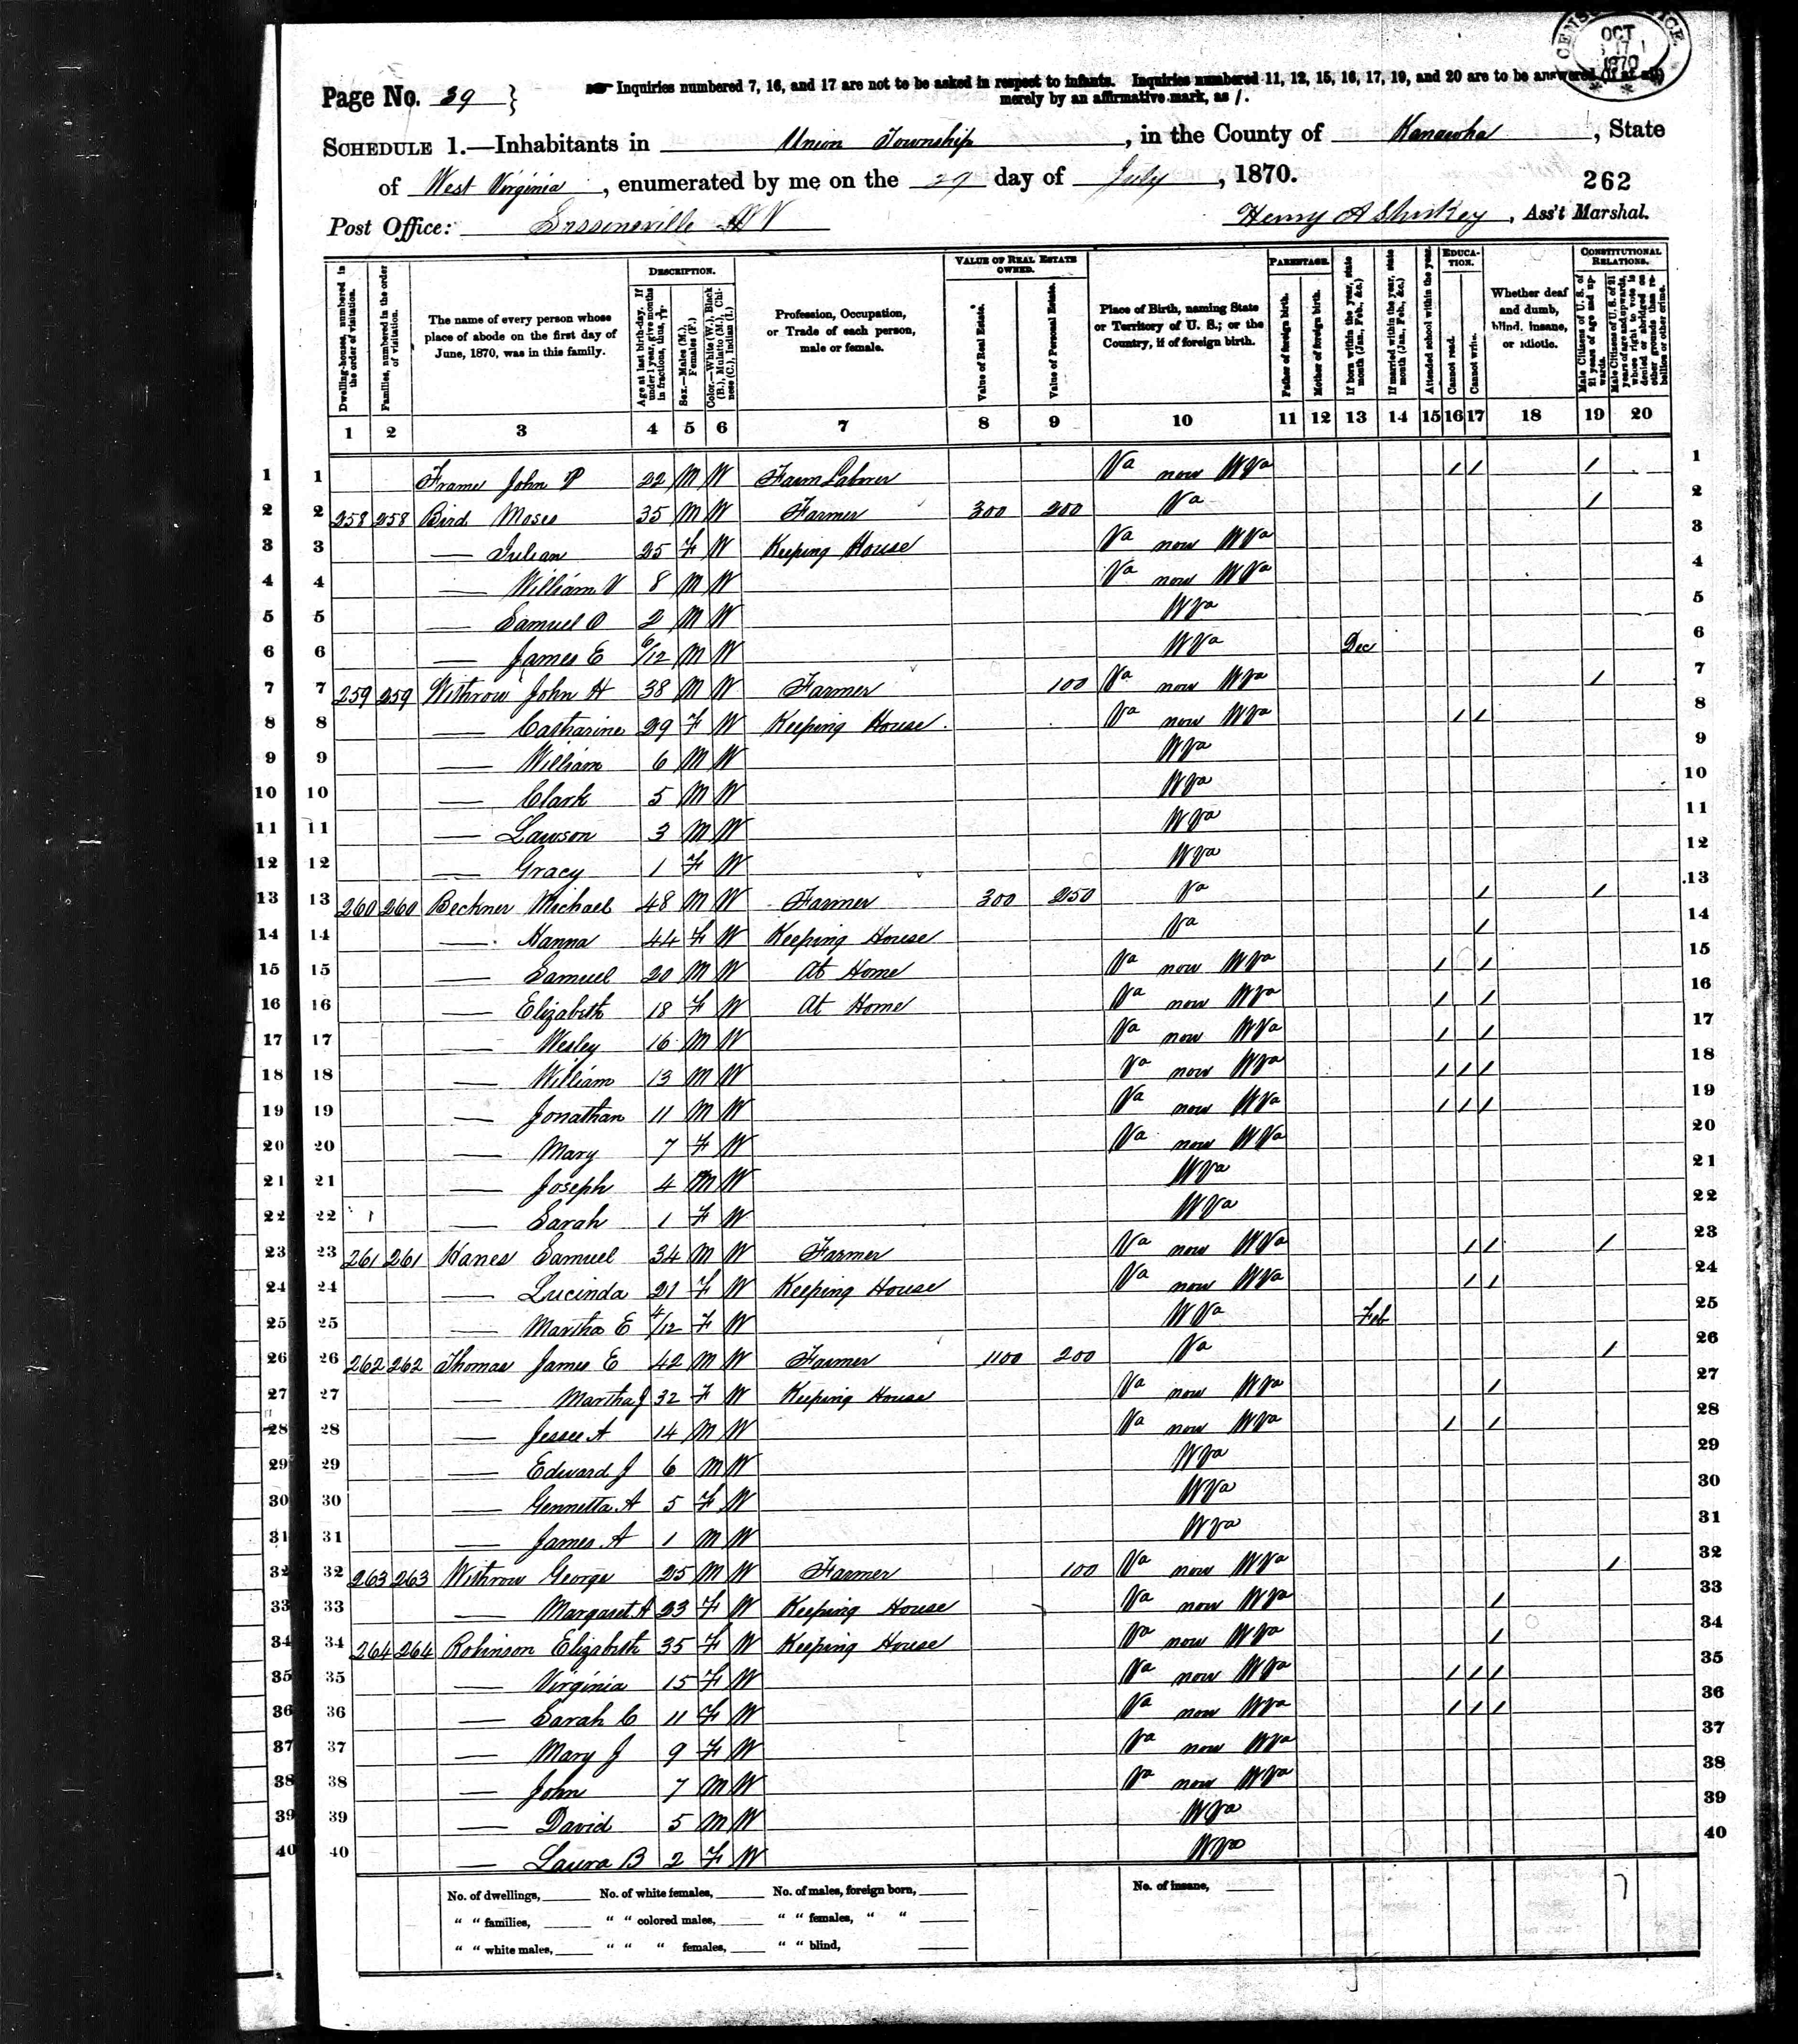 CENSUS OFFICE OCT 17 1870
Page No. 39 } Inquiries numbered 7, 16, and 17 are not to be asked in respect to infants. Inquiries numbered 11, 12, 15, 16, 17, 19, and 20 are to be answered (if at all)
merely by an affirmative mark, as /.
SCHEDULE 1.—Inhabitants in Union Township, in the County of Kanawha, State
of West Virginia, enumerated by me on the 29 day of July, 1870.
262
Post Office: Sissonville W V
Henry A Shirkey, Ass't Marshal.
Dwelling-houses, numbered in the order of visitation.
Families, numbered in the order of visitation.
The name of every person whose place of abode on the first day of June, 1870, was in this family.
DESCRIPTION.
Age at last birth-day. If under 1 year, give months in fractions, thus, 3/12
Sex.—Males (M.), Females (F.)
Color.—White (W.), Black (B.), Mulatto (M.), Chinese (C.), Indian (I.)
Profession, Occupation, or Trade of each person, male or female.
VALUE OF REAL ESTATE OWNED.
Value of Real Estate.
Value of Personal Estate.
Place of Birth, naming State or Territory of U. S.; or the Country, if of foreign birth.
PARENTAGE.
Father of foreign birth.
Mother of foreign birth.
If born within the year, state month (Jan., Feb., &c.)
If married within the year, state month (Jan., Feb., &c.)
Attended school within the year.
EDUCATION.
Cannot read.
Cannot write.
Whether deaf and dumb, blind, insane, or idiotic.
CONSTITUTIONAL RELATIONS.
Male Citizens of U. S. of 21 years of age and upwards.
Male Citizens of U. S. of 21 years of age and upwards, whose right to vote is denied or abridged on other grounds than rebellion or other crime.
1 2 3 4 5 6 7 8 9 10 11 12 13 14 15 16 17 18 19 20
1 1 Frame John P 22 M W Farm Laborer Va now W Va / / / 1
2 2 258 258 Bird Moses 35 M W Farmer 300 200 Va / 2
3 3 — Julian 25 F W Keeping House Va now W Va 3
4 4 — William V 8 M W Va now W Va 4
5 5 — Samuel O 2 M W W Va 5
6 6 — James E 6/12 M W W Va Dec 6
7 7 259 259 Withrow John H 38 M W Farmer 100 Va now W Va / 7
8 8 — Catharine 29 F W Keeping House Va now W Va / / 8
9 9 — William 6 M W W Va 9
10 10 — Clark 5 M W W Va 10
11 11 — Lawson 3 M W W Va 11
12 12 — Gracy 1 F W W Va 12
13 13 260 260 Beckner Michael 48 M W Farmer 300 250 Va / / 13
14 14 — Hanna 44 F W Keeping House Va / 14
15 15 — Samuel 20 M W At Home Va now W Va / / 15
16 16 — Elizabeth 18 F W At Home Va now W Va / / 16
17 17 — Wesley 16 M W Va now W Va / / 17
18 18 — William 13 M W Va now W Va / / / 18
19 19 — Jonathan 11 M W Va now W Va / / / 19
20 20 — Mary 7 F W Va now W Va 20
21 21 — Joseph 4 M W W Va 21
22 22 — Sarah 1 F W W Va 22
23 23 261 261 Hanes Samuel 34 M W Farmer Va now W Va / / / 23
24 24 — Lucinda 21 F W Keeping House Va now W Va / / 24
25 25 — Martha E 4/12 F W W Va Feb 25
26 26 262 262 Thomas James E 42 M W Farmer 1100 200 Va / 26
27 27 — Martha J 32 F W Keeping House Va now W Va / 27
28 28 — Jessee A 14 M W Va now W Va / / 28
29 29 — Edward J 6 M W W Va 29
30 30 — Gennetta A 5 F W W Va 30
31 31 — James A 1 M W W Va 31
32 32 263 263 Withrow George 25 M W Farmer 100 Va now W Va / 32
33 33 — Margaret A 23 F W Keeping House Va now W Va / 33
34 34 264 264 Robinson Elizabeth 35 F W Keeping House Va now W Va / 34
35 35 — Virginia 15 F W Va now W Va / / / 35
36 36 — Sarah C 11 F W Va now W Va / / / 36
37 37 — Mary J 9 F W Va now W Va 37
38 38 — John 7 M W Va now W Va 38
39 39 — David 5 M W W Va 39
40 40 — Laura B 2 F W W Va 40
No. of dwellings, No. of white females, No. of males, foreign born, No. of insane, 7
" " families, " " colored males, " " females, " "
" " white males, " " " females, " " blind,